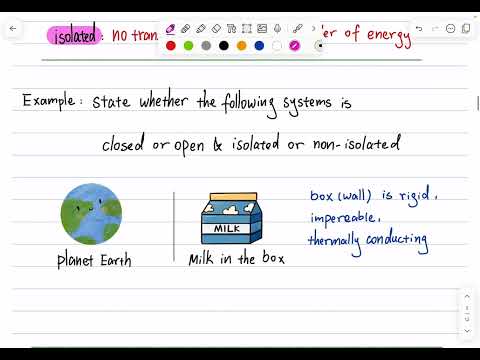 isolated: no tran er of energy
Example: State whether the following systems is
closed or open & isolated or non-isolated
MILK
box (wall) is rigid,
impereable,
thermally conducting
planet Earth
Milk in the box